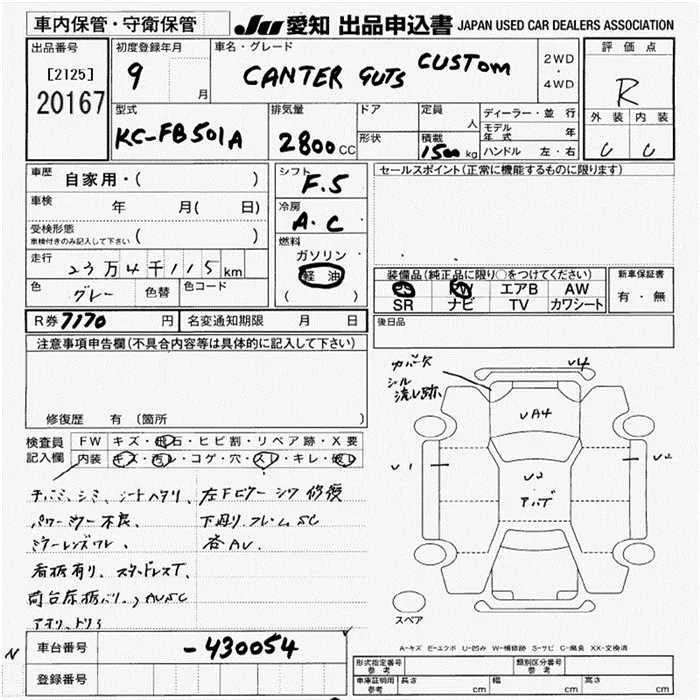 車内保管・守衛保管
JU 愛知 出品申込書 JAPAN USED CAR DEALERS ASSOCIATION
出品番号
[2125]
20167
初度登録年月
9 月
車名・グレード
CANTER GUTS CUSTOM
2WD
・
4WD
評価点
R
外装 内装
C C
型式
KC-FB501A
排気量
2800 CC
ドア
形状
定員
人
積載
1500 kg
ディーラー・並行
モデル年式 年
ハンドル 左・右
車歴
自家用・( )
車検
年 月( 日)
受検形態
車検付きのみ記入して下さい ( )
走行
23万4千115 km
色
グレー
色替
色コード
シフト
F.5
冷房
A.C
燃料
ガソリン
軽油
( )
セールスポイント(正常に機能するものに限ります)
装備品(純正品に限り○をつけてください)
エアB AW
SR ナビ TV カワシート
新車保証書
有・無
後日品
R券 7170 円
名変通知期限 月 日
注意事項申告欄(不具合内容等は具体的に記入して下さい)
修復歴 有 (箇所 )
検査員
記入欄
FW キズ・飛石・ヒビ割・リペア跡・X要
内装 キズ・汚レ・コゲ・穴・スレ・キレ・破レ
チバミ、シミ、シートヘタリ、左下ピラーシワ修復
パワーミラー不良、下廻り、フレームSC
ミラーレンズワレ、各AU.
看板有り、スタッドレスT、
車台番号
-430054
登録番号
N
カバー欠
シール
流レ跡.
U4
UA4
U1
U2
U2
アバデ
スペア
A-キズ E-エクボ U-凹み W-補修跡 S-サビ C-腐食 XX-交換済
形式指定番号
参考
類別区分番号
参考
車庫証明用
参考
長さ cm
幅 cm
高さ cm